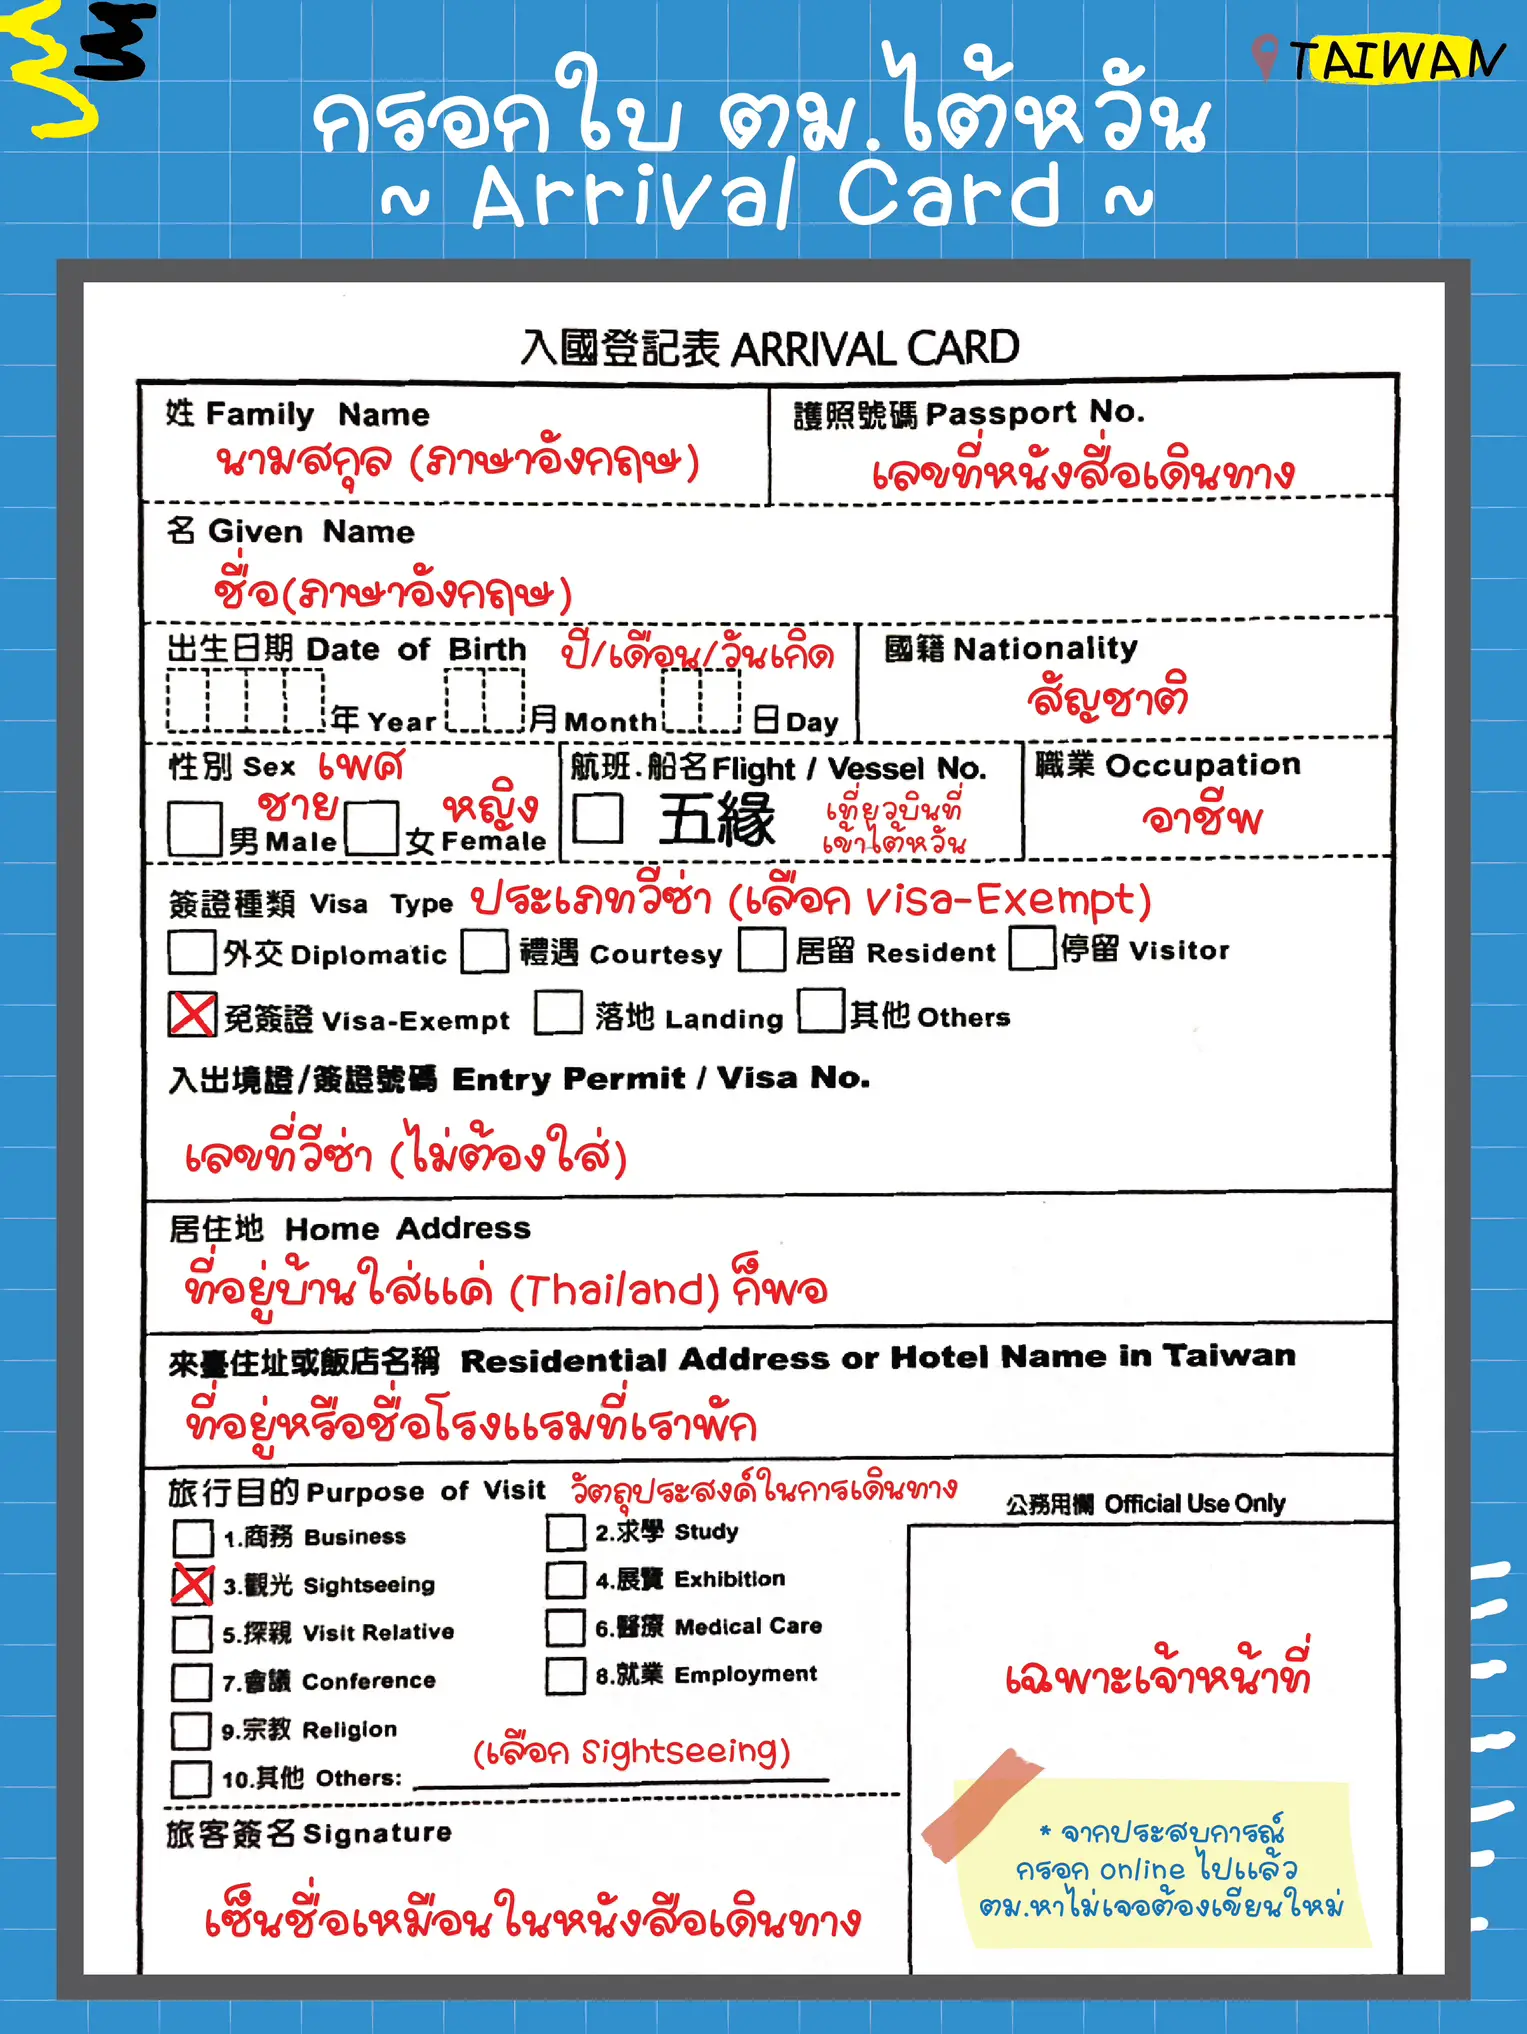 TAIWAN
กรอกใบ ตม.ไต้หวัน
~ Arrival Card ~
入國登記表 ARRIVAL CARD
姓 Family Name
นามสกุล (ภาษาอังกฤษ)
護照號碼 Passport No.
เลขที่หนังสือเดินทาง
名 Given Name
ชื่อ(ภาษาอังกฤษ)
出生日期 Date of Birth ปี/เดือน/วันเกิด
年 Year 月 Month 日 Day
國籍 Nationality
สัญชาติ
性別 Sex เพศ
ชาย หญิง
男 Male 女 Female
航班.船名 Flight / Vessel No.
五緣 เที่ยวบินที่
เข้าไต้หวัน
職業 Occupation
อาชีพ
簽證種類 Visa Type ประเภทวีซ่า (เลือก Visa-Exempt)
外交 Diplomatic 禮遇 Courtesy 居留 Resident 停留 Visitor
免簽證 Visa-Exempt 落地 Landing 其他 Others
入出境證/簽證號碼 Entry Permit / Visa No.
เลขที่วีซ่า (ไม่ต้องใส่)
居住地 Home Address
ที่อยู่บ้านใส่แค่ (Thailand) ก็พอ
來臺住址或飯店名稱 Residential Address or Hotel Name in Taiwan
ที่อยู่หรือชื่อโรงแรมที่เราพัก
旅行目的 Purpose of Visit วัตถุประสงค์ในการเดินทาง
1.商務 Business 2.求學 Study
3.觀光 Sightseeing 4.展覽 Exhibition
5.探親 Visit Relative 6.醫療 Medical Care
7.會議 Conference 8.就業 Employment
9.宗教 Religion
(เลือก Sightseeing)
10.其他 Others:
公務用欄 Official Use Only
เฉพาะเจ้าหน้าที่
旅客簽名 Signature
เซ็นชื่อเหมือนในหนังสือเดินทาง
* จากประสบการณ์
กรอก online ไปแล้ว
ตม.หาไม่เจอต้องเขียนใหม่